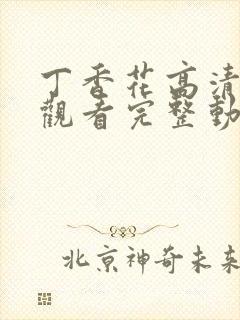 丁香花高清
觀看完整動
北京神奇未来